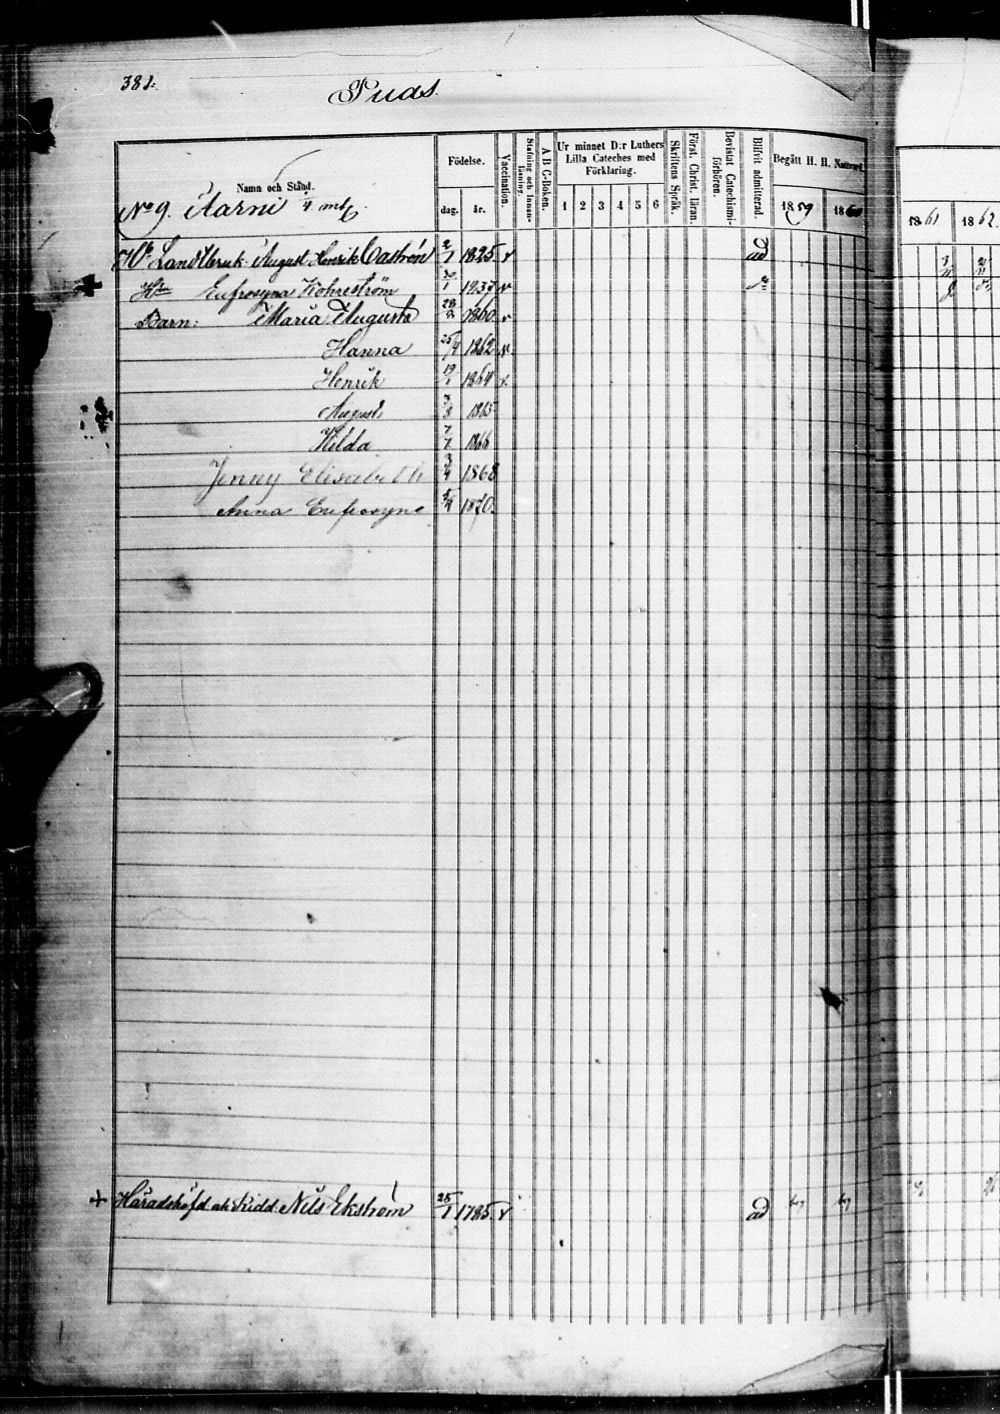 381.
Puas.
Namn och Stånd.
Födelse.
dag. år.
Vaccination.
Stafning och Innanläsning.
A B C-Boken.
Ur minnet D:r Luthers Lilla Cateches med Förklaring.
1 2 3 4 5 6
Skriftens Språk.
Först. Christ. läran.
Bevistat Catechismiförhören.
Blifvit admitterad.
Begått H. H. Nattvard
1859 1860 1861 1862
No 9. Aarni 1/4 mtl.
Landtbruk. August Henrik Castrén 2/1 1825 v ad
Eufrosyna 1837 v
Barn: Maria Augusta 28/2 1860 v
Hanna 25/4 1862 v
Henrik 19/1 1864 v
August 1865
Hilda 7/7 1866
Jenny Elisabeth 3/4 1868
Anna Eufrosyne 1870
+ Häradshöfd. och Ridd. Nils Ekström 25/1 1785 v ad